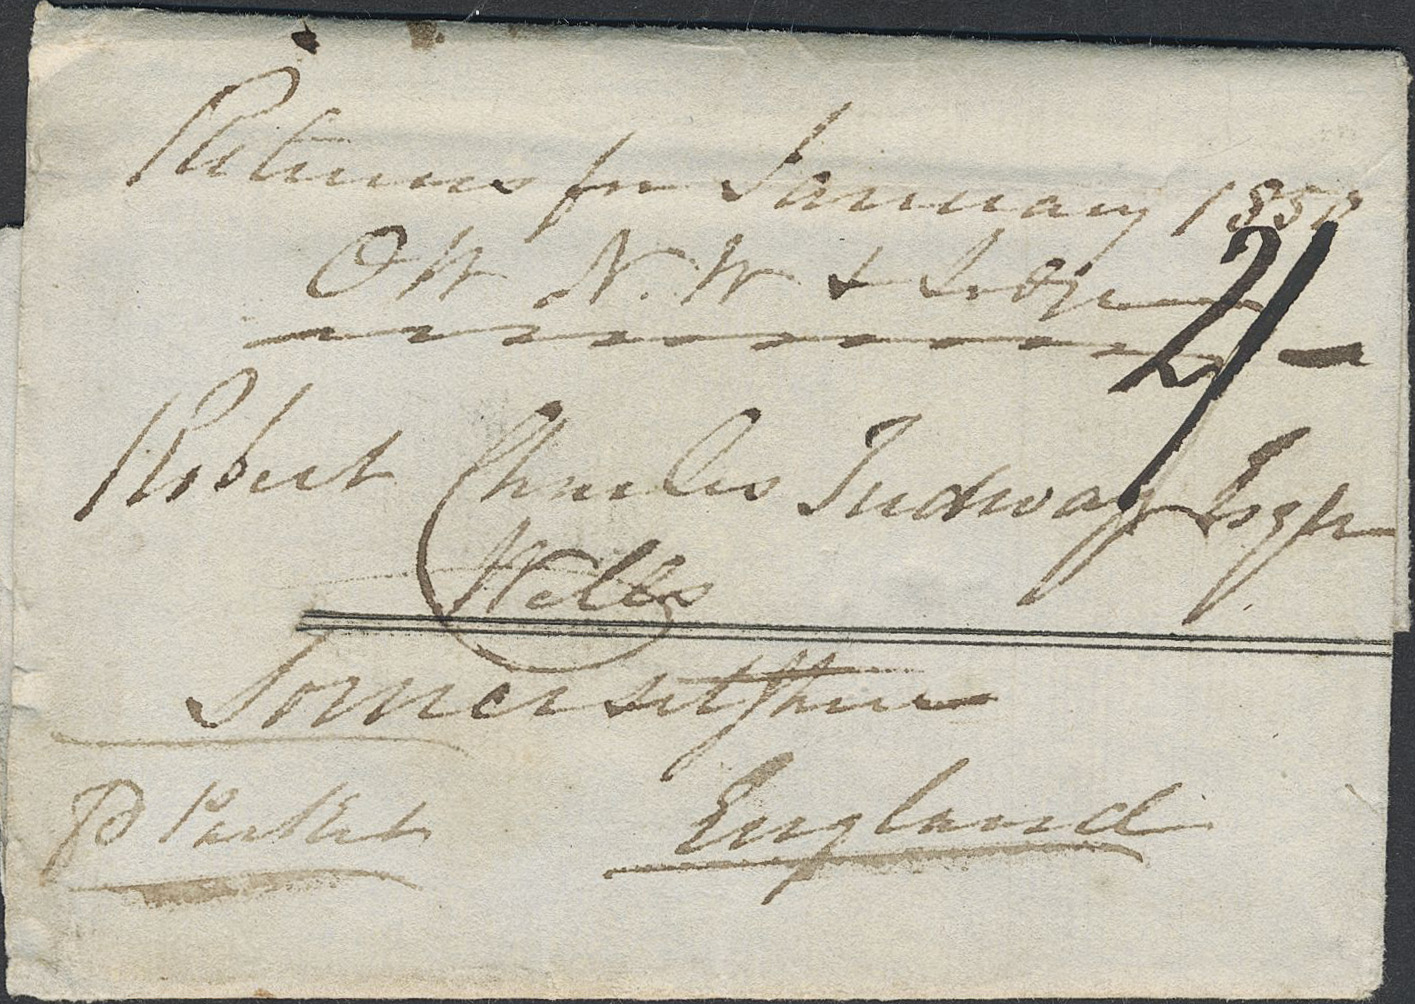 Returns for January 185
O W N. W &
2/-
Robert Charles Tudway Esqr
Wells
Somersetshire
England
P Packet